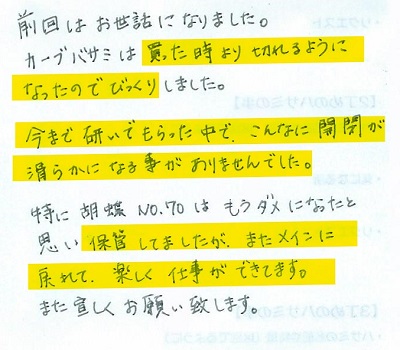 前回はお世話になりました。
カーブバサミは買った時より切れるように
なったのでびっくりしました。
今まで研いでもらった中で、こんなに開閉が
滑らかになる事がありませんでした。
特に胡蝶NO.70はもうダメになったと
思い保管してましたが、またメインに
戻れて、楽しく仕事ができてます。
また宜しくお願い致します。